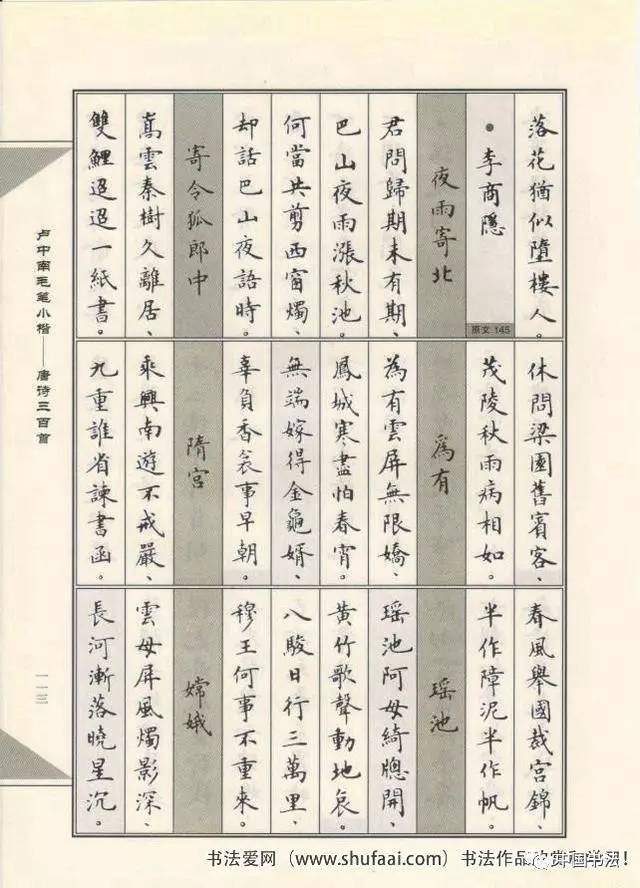 落花猶似墮樓人。
·李商隱
原文 145
夜雨寄北
君問歸期未有期、
巴山夜雨漲秋池。
何當共剪西窗燭、
却話巴山夜語時。
寄令狐郎中
嵩雲秦樹久離居、
雙鯉迢迢一紙書。
休問梁園舊賓客、
茂陵秋雨病相如。
爲有
為有雲屏無限嬌、
鳳城寒盡怕春宵。
無端嫁得金龜婿、
辜負香衾事早朝。
隋宮
乘興南遊不戒嚴、
九重誰省諫書函。
春風舉國裁宮錦、
半作障泥半作帆。
瑶池
瑶池阿母綺牎開、
黃竹歌聲動地哀。
八駿日行三萬里、
穆王何事不重來。
嫦娥
雲母屏風燭影深、
長河漸落曉星沉。
卢中南毛笔小楷——唐诗三百首
一一三
书法爱网（www.shufaai.com）书法作品
中国书法